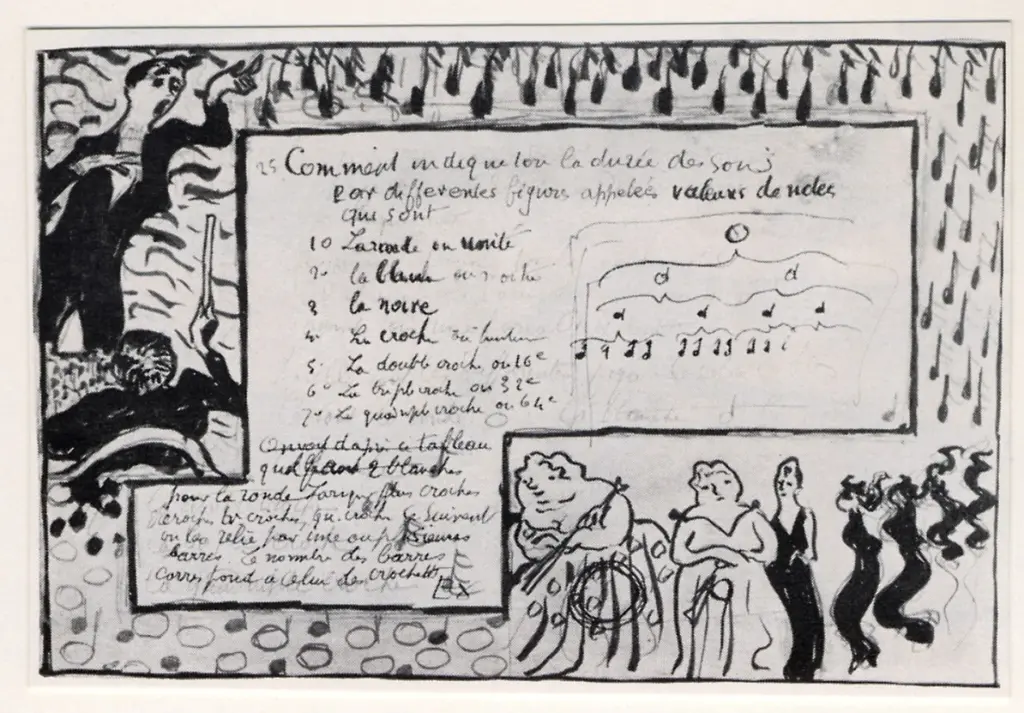 25 Comment indique ton la durée des sons
Par differentes figures appelées valeurs de notes
qui sont
10 La ronde ou unité
2° la blanche ou
3 la noire
4° La croche ou
5° La double croche ou 16e
6° La triple croche ou 32e
7° La quadruple croche ou 64e
On voit d'apré ce tableau
qu'il faut 2 blanches
pour la ronde croches
croches croches, qui se suivent
on les relie par une ou plusieurs
barres Le nombre des barres
correspond a celui des crochets
Ex